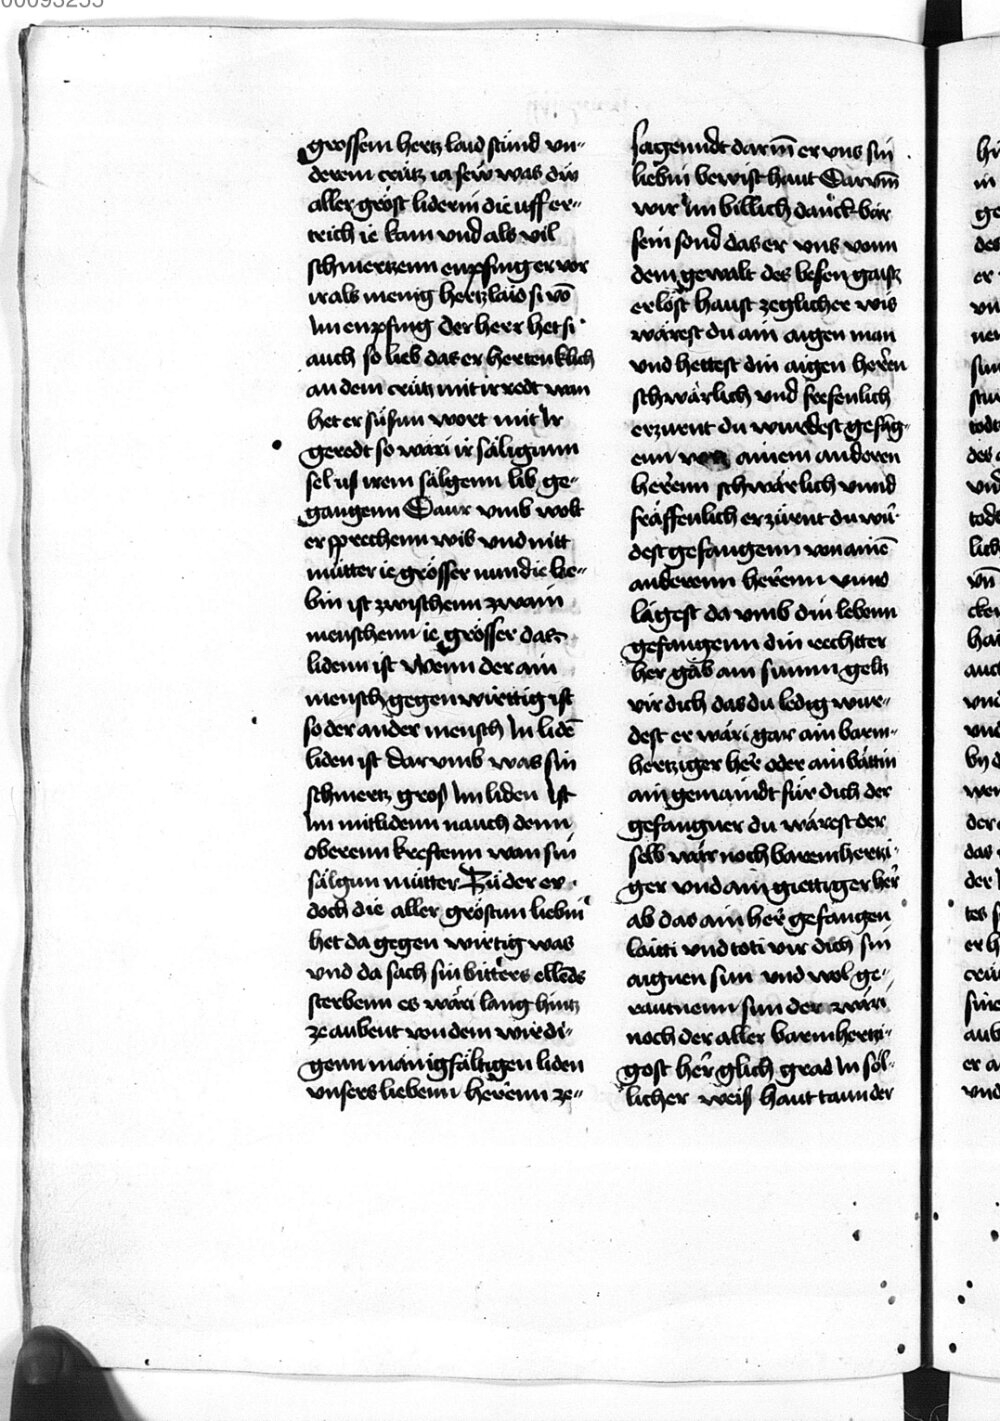 00093255
grossem hertz laid stůnd vn-
derem crütz ia sew was diß
aller gröst liderin die uff er-
trich ie kam vnd als vil
schmertzenn enpfing er vor
ir als menig hertzlaid si vō
Im enpfing der herr het si
auch so lieb das er hertenklich
an dem crütz mit ir redt wan
het er süsun wort mit Ir
geredt so wäri ir säligunn
sel us irem säligenn lib ge-
gangenn Daur vmb wolt
er sprechenn wib vnd nitt
můtter ie grösser nun die lie-
bin ist zwischenn zwain
menschenn ie grösser das
lidenn ist Wenn der ain
mensch gegen württig ist
so der ander mensch In lidē
liden ist Dar vmb was sin
schmertz groß Im liden Ist
Im mitlidenn nauch denn
oberenn kreftenn wan sin
sälgun můtter Zů der er
doch die aller gröstun liebin
het da gegen wirtig was
vnd da sach sin bitters ellēds
sterbenn es wäri lang hüntz
ze aubent von dem wirdi-
genn manigfältigen liden
vnsers liebenn herrenn ze-
sagenndt dar Inn er vns sin
liebin bewist haut Darvm̄
wir Im billich danckbär
sein sond das er vns vonn
dem gewalt des besen gaist
erlöst haust zeglicher wis
wärest du ain aigen man
vnd hettest din aigen heren
schwärlich vnd frefenlich
erzurnt du wurdest gefāg-
enn von ainem anderen
herenn schwärlich vnnd
fräffenlich erzürnt du wū-
dest gefangenn von ainē
anderenn herenn vnnd
lägest da vmb din lebenn
gefangenn din rechtter
her gäb ain summ geltz
vir dich das du ledig wur-
dest er wäri gar ain barm-
hertziger her oder ain bättin
ain gemaindt für dich der
gefangner du wärest der
selb wär noch baremhertzi-
ger vnd ain giettiger her
ab das ain her gefangen
laitti vnd toti vir dich sin
aignen sun vnd wol ge-
rautnenn sun der wäri
noch der aller barmhertzi-
gost her glich grad In söl-
licher weiß haut taun der